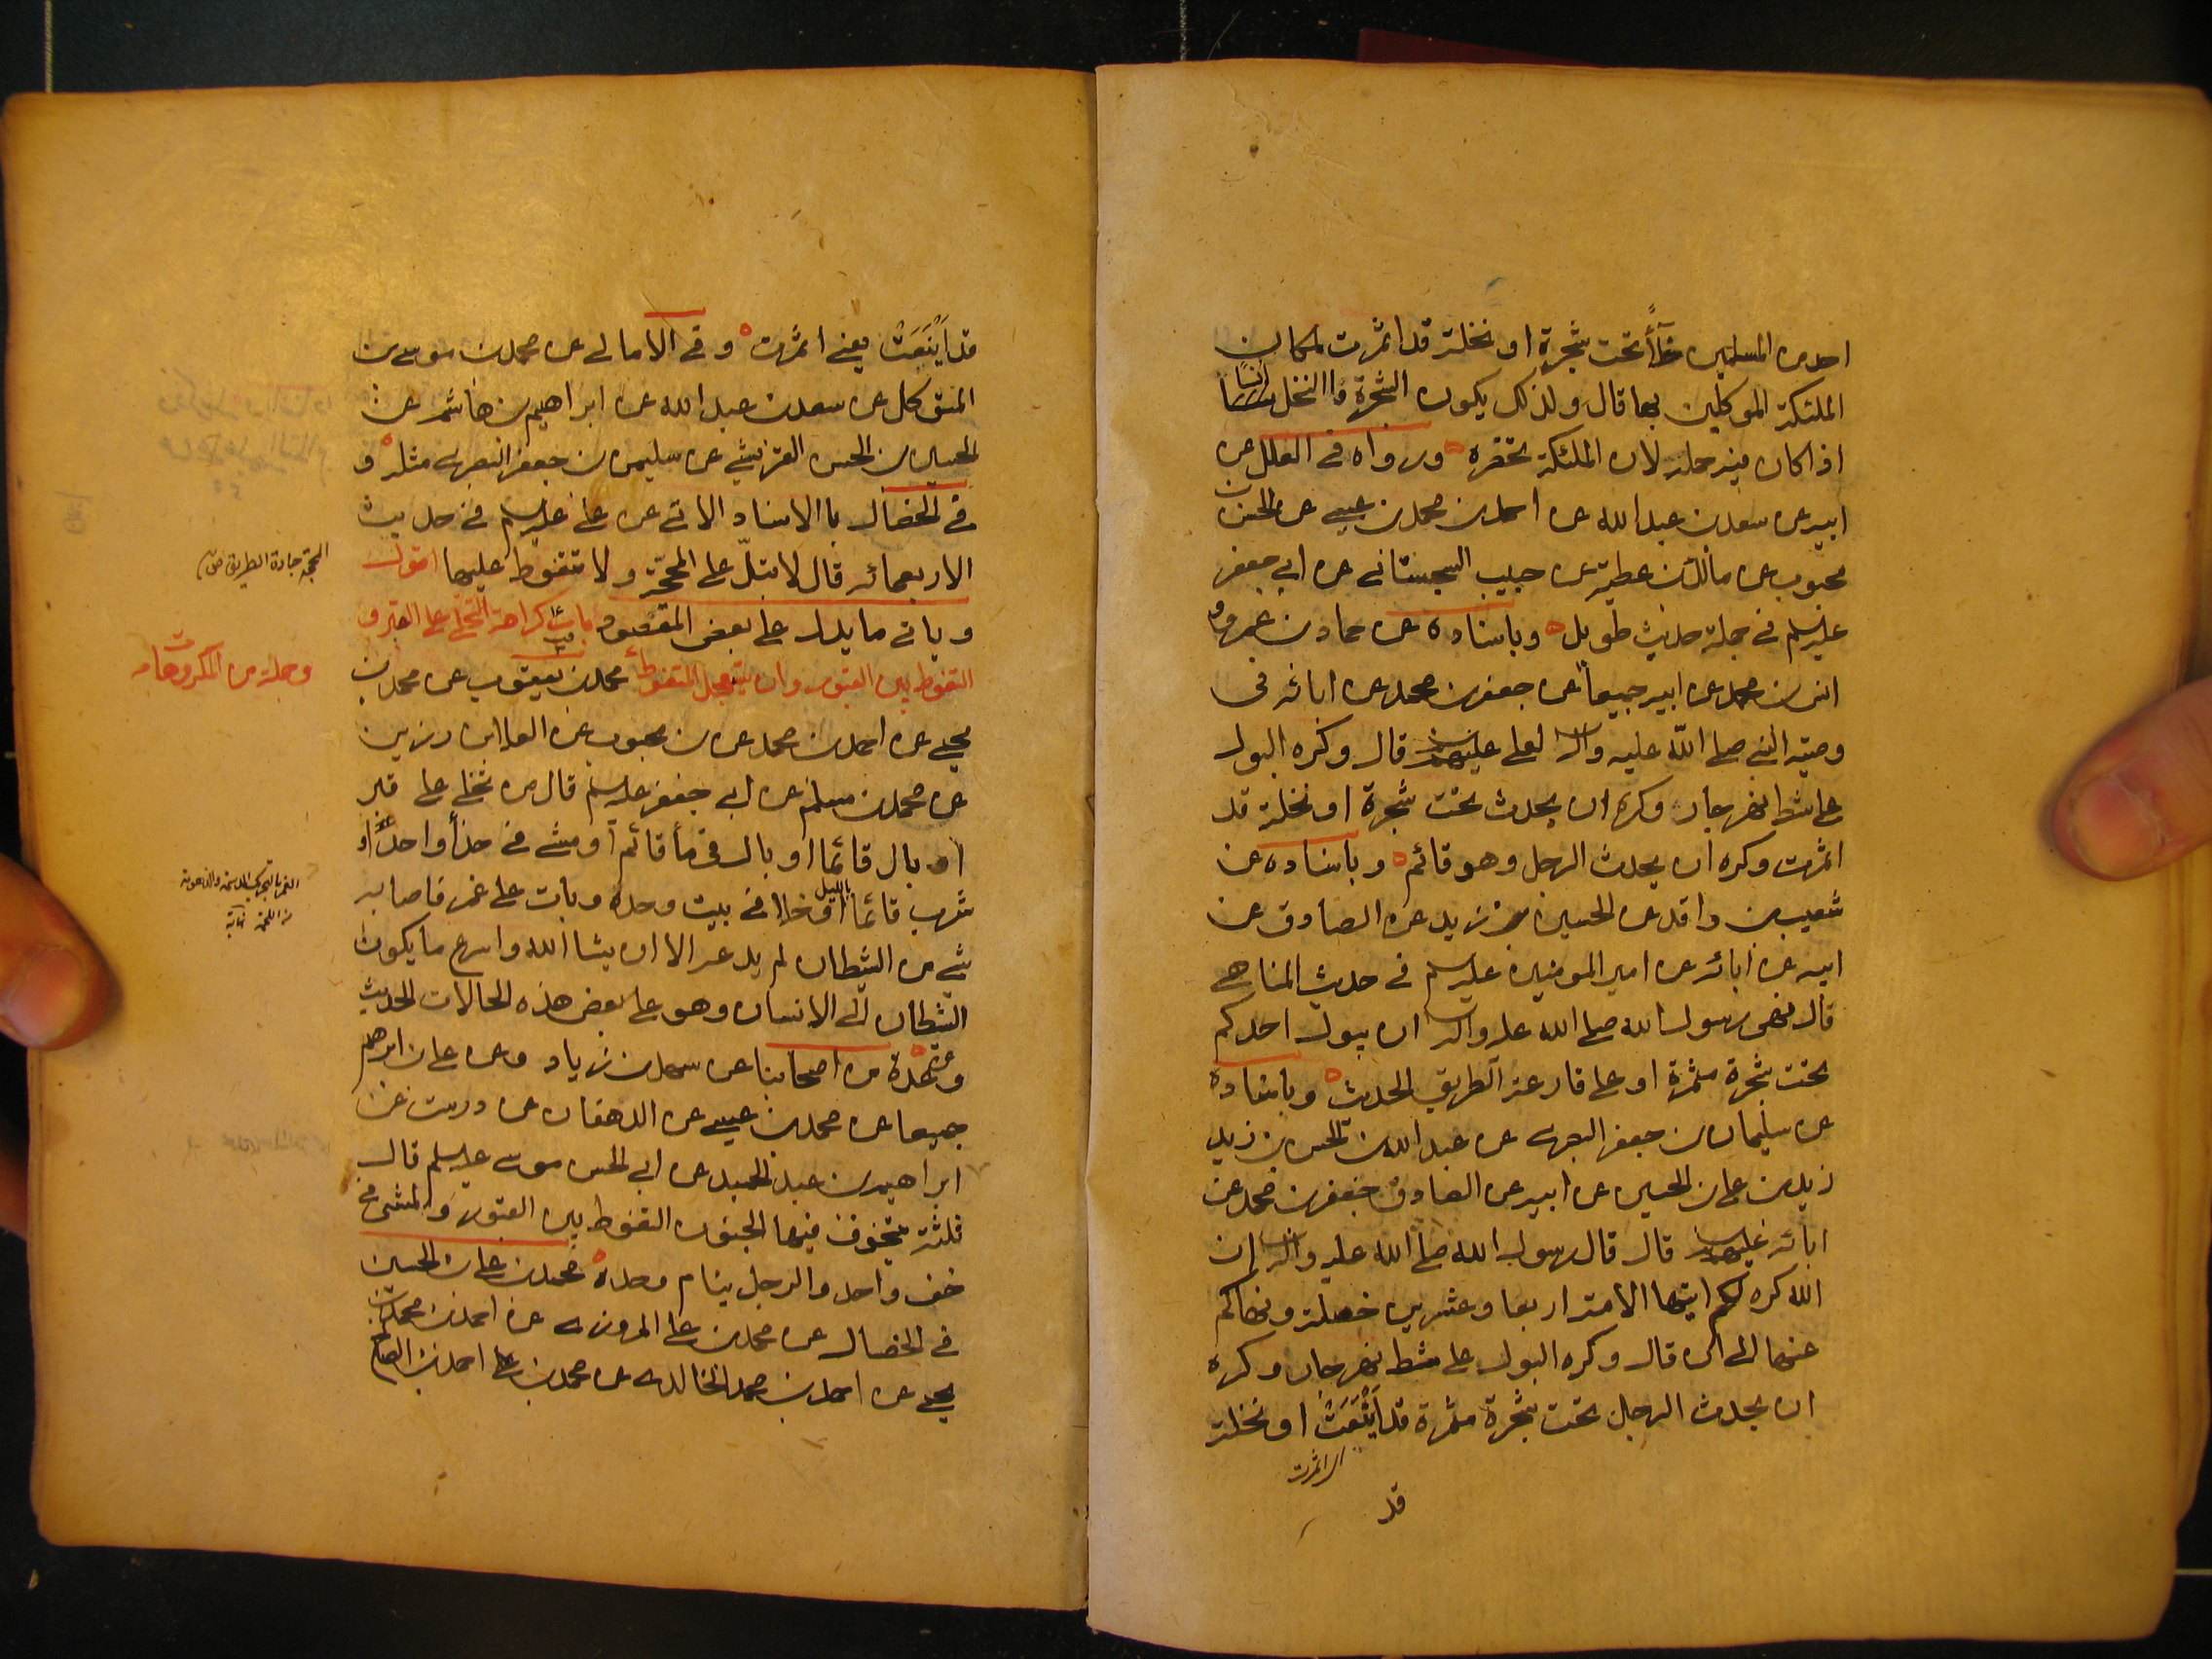 احد من المسلمين خلأً تحت شجرة او نخلة قد اثمرت لمكان
الملئكة الموكلين بها قال ولذلك يكون الشجرة والنخل انسا
اذا كان فيه حمله لان الملئكة تحضره ورواه في العلل عن
ابيه عن سعد بن عبد الله عن احمد بن محمد بن عيسى عن الحسن بن
محبوب عن مالك بن عطية عن حبيب السجستاني عن ابي جعفر
عليه السلم في جملة حديث طويل وباسناده عن حماد بن عمرو و
انس بن محمد عن ابيه جميعاً عن جعفر بن محمد عن ابائه في
وصية النبي صلى الله عليه واله لعلي عليهم السلام قال وكره البول
على شط نهر جار وكره ان يحدث تحت شجرة او نخلة قد
اثمرت وكره ان يحدث الرجل وهو قائم وباسناده عن
شعيب بن واقد عن الحسين بن زيد عن الصادق عن
ابيه عن ابائه عن امير المومنين عليه السلم في حديث المناهي
قال نهى رسول الله صلى الله عليه واله ان يبول احدكم
تحت شجرة مثمرة او على قارعة الطريق الحديث وباسناده
عن سليمان بن جعفر البصري عن عبد الله بن الحسين بن زيد
زيد بن علي بن الحسين عن ابيه عن الصادق جعفر بن محمد عن
ابائه عليهم السلام قال قال رسول الله صلى الله عليه واله ان
الله كره لكم ايتها الامة اربعا وعشرين خصلة ونهاكم
عنها الى ان قال وكره البول على شط نهر جار وكره
ان يحدث الرجل تحت شجرة مثمرة قد اَيْنَعَتْ او نخلة
اى اثمرت
قد
قد اَيْنَعَتْ يعني اثمرت وفي الامالي عن محمد بن موسى بن
المتوكل عن سعد بن عبد الله عن ابراهيم بن هاشم عن
الحسين بن الحسن القرشي عن سليمن بن جعفر البصري مثله و
في الخصال بالاسناد الاتي عن علي عليه السلم في حديث
الاربعمائه قال لا تبل على المحجّة ولا تتغوط عليها اقول
المحجة جادة الطريق ص
وياتي ما يدل على بعض المقصود باب كراهة التخلي على القبر و
التغوط بين القبور وان يتعجل المتغوط محمد بن يعقوب عن محمد بن
وجملة من المكروهات
يحيى عن احمد بن محمد عن بن محبوب عن العلا بن رزين
عن محمد بن مسلم عن ابي جعفر عليه السلم قال من تخلى على قبر
او بال قائما او بال في مأ قائم او مشى في حذأ واحد او
شرب قائما او خلا في بيت وحده وبات على غمر فاصابه
الغمر بالتحريك الدسم والزهومة
من اللحم نهاية
شي من الشيطان لم يدعه الا ان يشا الله واسرع ما يكون
الشيطان الى الانسان وهو على بعض هذه الحالات الحديث
وعن عدة من اصحابنا عن سهل بن زياد وعن علي بن ابراهيم
جميعا عن محمد بن عيسى عن الدهقان عن درست عن
ابراهيم بن عبد الحميد عن ابي الحسن موسى عليه السلم قال
ثلثة يتخوف فيها الجنون التغوط بين القبور والمشي في
خف واحد والرجل ينام وحده محمد بن علي بن الحسين
في الخصال عن محمد بن علي المروزي عن احمد بن محمد بن
يحيى عن احمد بن محمد الخالدي عن محمد بن احمد بن الصالح